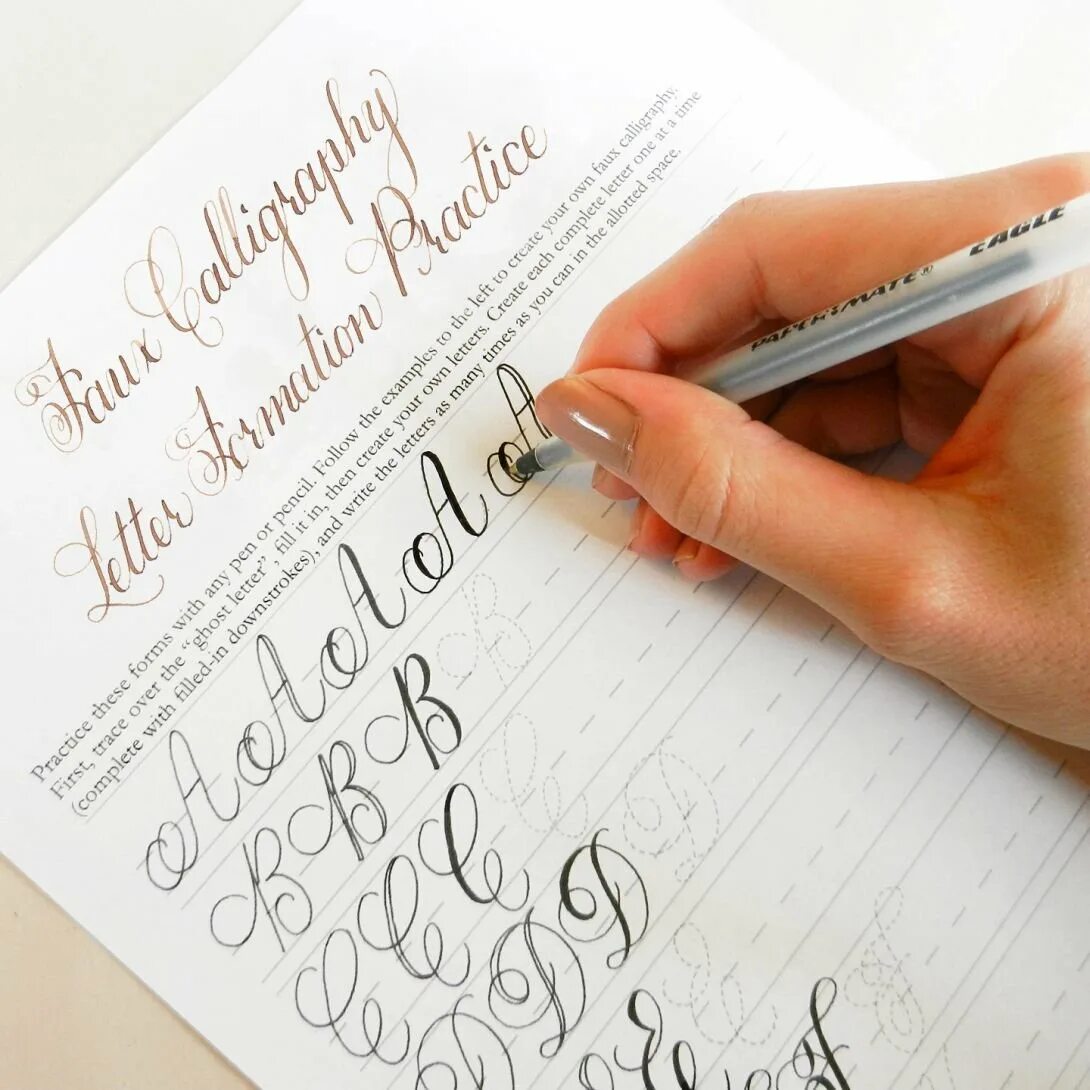 Faux Calligraphy
Letter Formation Practice
Practice these forms with any pen or pencil. Follow the examples to the left to create your own faux calligraphy.
First, trace over the “ghost letter”, fill it in, then create your own letters. Create each complete letter one at a time
(complete with filled-in downstrokes), and write the letters as many times as you can in the allotted space.
A A A A A
B B B B
C C C C
D D D D
E E E
F F
PAPER MATE® EAGLE